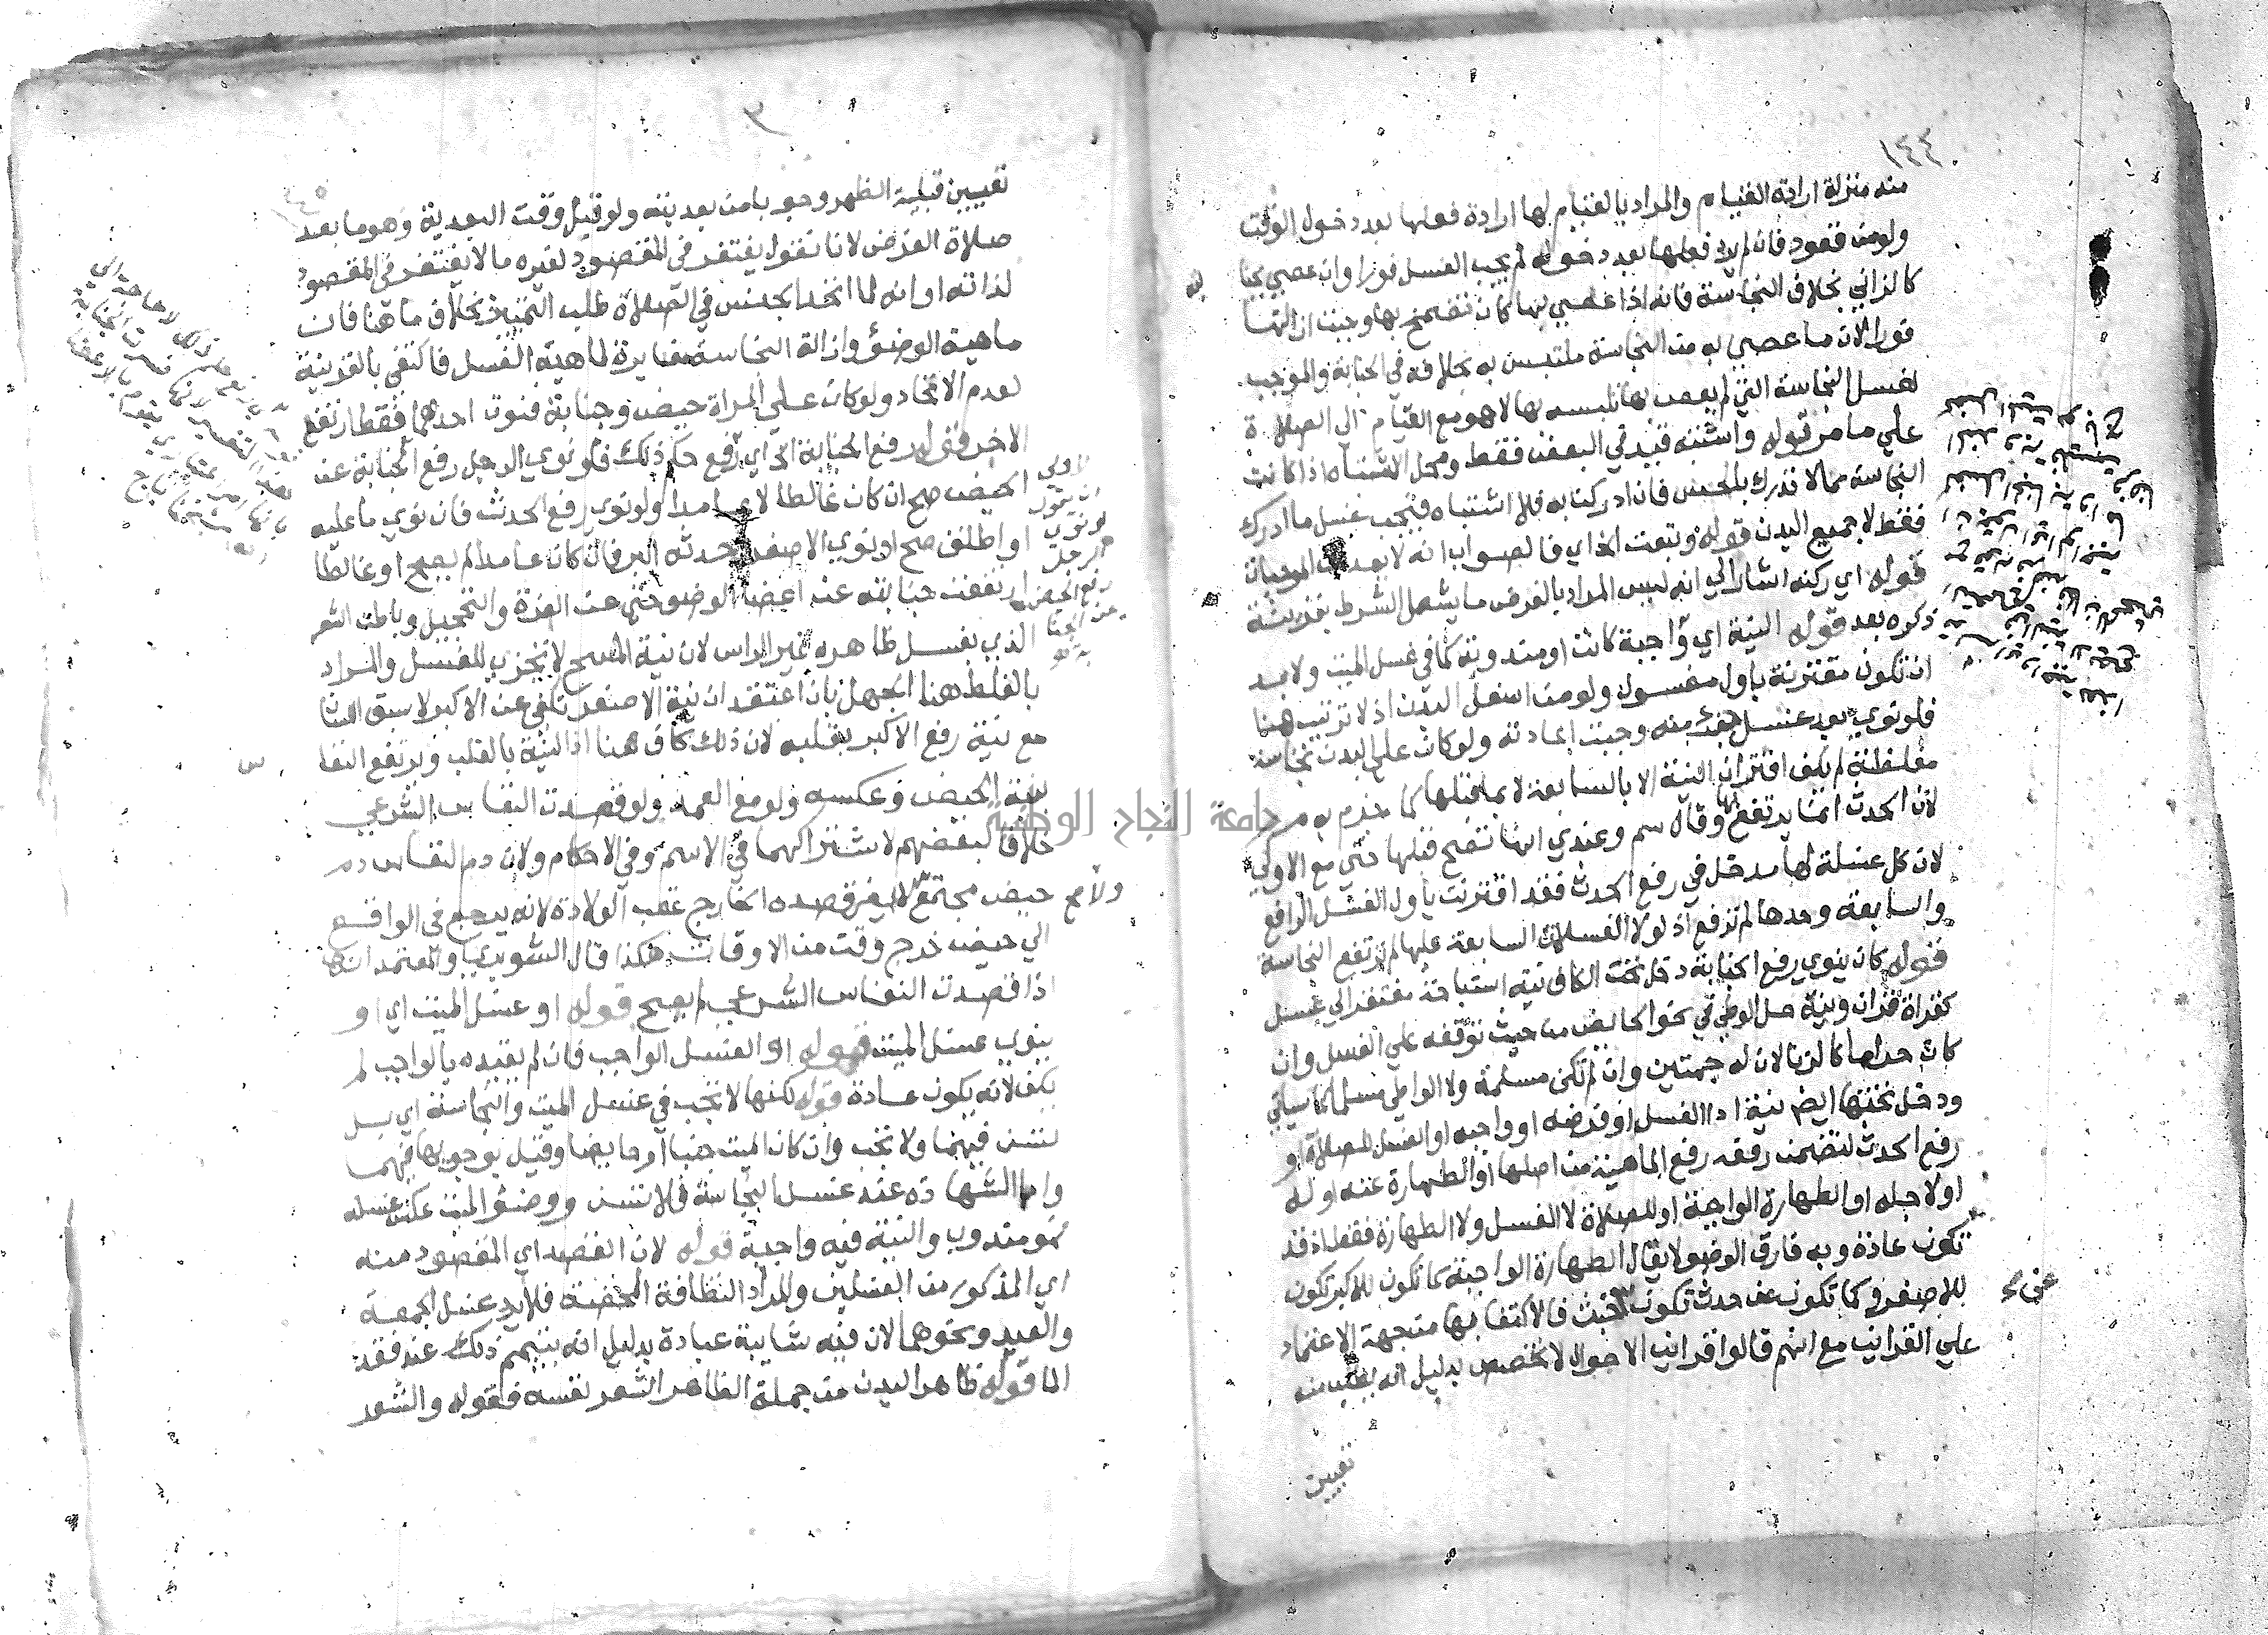 ١٤٤
منه منزلة ارادة القيام والمراد بالقيام لها ارادة فعلها بعد دخول الوقت
ولو من قعود فان لم يرد فعلها بعد دخوله لم يجب الغسل فورا وان عصي بجنا
بته
كالزاني بخلاف النجاسة فانه اذا عصي بها كان تضمخ بها وجبت ازالتها
فورا لان ما عصي به من النجاسة ملتبس به بخلافه في الجنابة والموجب
لغسل النجاسة التي لم يعص بها تلبسه بها لا هو مع القيام الى الصلاة
علي ما مر قوله واشتبه قيد في البعض فقط ومحل الاشتباه اذا كانت
النجاسة مما لا تدرك بالحس فان ادركت به فلا اشتباه فيجب غسل ما ادرك
فقط لا جميع البدن قوله وتبعت الخ اي فالصواب انه لا يعد من الموجبات
قوله اي ركنه اشار الي انه ليس المراد بالفرض ما يشمل الشرط بقرينة
ذكره بعد قوله النية اي واجبة كانت او مندوبة كما في غسل الميت ولا بد
ان تكون مقترنة باول مغسول ولو من اسفل البدن اذ لا ترتيب هنا
فلو نوي بعد غسل جزء منه وجبت اعادته ولو كان علي البدن نجاسة
مغلظة لم يكف اقتران النية الا بالسابعة لا بما قبلها كما جزم به م ر
لان الحدث انما يرتفع بها وقال سم وعندي انها تصح قبلها حتي مع الاولي
لان كل غسلة لها مدخل في رفع الحدث فقد اقترنت باول الغسل الرافع
والسابعة وحدها لم ترفع اذ لولا الغسلات السابعة عليها لم ترتفع النجاسة
قوله كان ينوي رفع الجنابة دخل تحت الكاف نية استباحة مفتقر الي غسل
كقراة قران ونية حل الوطئ في نحو الحايض من حيث توقفه علي الغسل وان
كان حراما كالزنا لان له جهتين وان لم تكن مسلمة ولا الواطئ مسلما كما سياتي
ودخل تحتها ايضا نية ادا الغسل او فرضه او واجبه او الغسل للصلاة او
رفع الحدث لتضمن رفعه رفع الماهية من اصلها او الطهارة عنه او له
او لاجله او الطهارة الواجبة او للصلاة لا الغسل ولا الطهارة فقط اذ قد
تكون عادة وبه فارق الوضو لا يقال الطهارة الواجبة كما تكون للاكبر تكون
للاصغر وكما تكون عن حدث تكون عن خبث فالاكتفا بها متجهة الاعتماد
علي القراين مع انهم قالوا قراين الاحوال لا تخصص بدليل انه يطلب منه
تعيين
٣
١٤٥
تعيين قبلية الظهر وجوبا من بعديته ولو قبل وقت البعدية وهو ما بعد
صلاة الفرض لانا نقول يغتفر في المقصود لغيره ما لا يغتفر في المقصود
لذاته او انه لما اتحد الجنس في الصلاة طلب التمييز بخلاف ما هنا فان
ماهية الوضؤ وازالة النجاسة مغايرة لماهية الغسل فاكتفي بالقرينة
لعدم الاتحاد ولو كان علي المراة حيض وجنابة فنوت احدهما فقط ارتفع
الاخر قوله رفع الجنابة الخ اي رفع حكم ذلك فلو نوي الرجل رفع الجنابة عن
الحيض صح ان كان غالطا لا عامدا ولو نوي رفع الحدث فان نوي ما عليه
او اطلق صح او نوي الاصغر وحدثه اكبر فان كان عامدا لم يصح او غالطا
ارتفعت جنابته عن اعضا الوضو حتي عن الغرة والتحجيل وباطن الشعر
الذي يغسل ظاهره غير الراس لان نية المسح لا تجزي للغسل والمراد
بالغلط هنا الجهل بان اعتقد ان نية الاصغر تكفي عن الاكبر لا سبق اللسا
مع نية رفع الاكبر بقلبه لان ذلك كاف هنا اذ النية بالقلب ويرتفع النفا
س
بنية الحيض وعكسه ولو مع العمد ولو قصدت النفاس الشرعي
خلافا لبعضهم لاشتراكهما في الاسم وفي الاحكام ولان دم النفاس دم
حيض مجتمع ولا يضر قصده الخارج عقب الولادة لانه يرجع في الواقع
الي حيض خرج وقت من الاوقات هكذا قال الشوبري والمعتمد انها
اذا قصدت النفاس الشرعي لم يصح قوله او غسل الميت اي او
ينوي غسل الميت قوله او الغسل الواجب فان لم يقيده بالواجب لم
يكف لانه يكون عادة قوله لكنها لا تجب في غسل الميت والنجاسة اي بل
تسن فيهما ولا تجب وان كان الميت جنبا او حايضا وقيل بوجوبها فيهما
واما الشهادة عند غسل النجاسة فلا تسن ووضؤ الميت عكس غسله
فهو مندوب والنية فيه واجبة قوله لان القصد اي المقصود منه
اي المذكور من الغسلين والمراد النظافة المحضة فلا يرد غسل الجمعة
والعيد ونحوهما لان فيه شايبة عبادة بدليل انه يتيمم ذلك عند فقد
الما قوله ظاهر البدن من جملة الظاهر الشعر نفسه فقوله والشعر
جامعة النجاح الوطنية